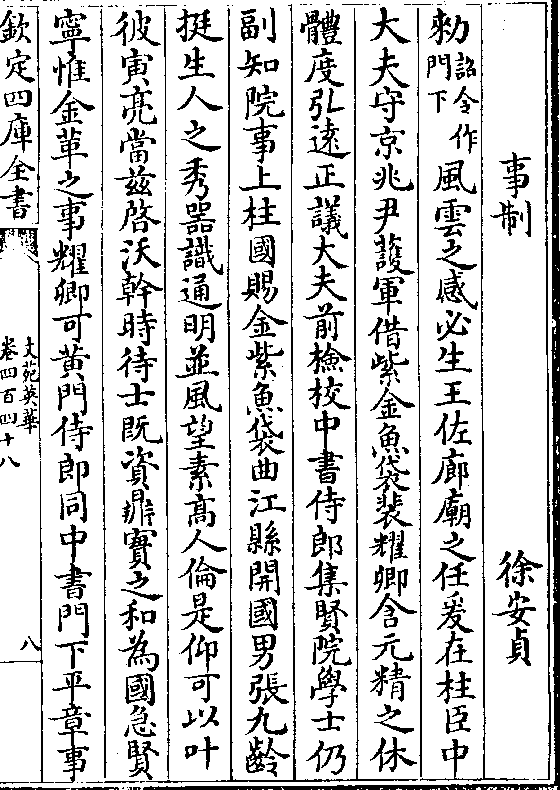 事制　徐安貞
勅詔令作門下風雲之感必生王佐廊廟之任爰在柱臣中
大夫守京兆尹護軍借紫金魚袋裴耀卿含元精之休
體度弘遠正議大夫前檢校中書侍郎集賢院學士仍
副知院事上柱國賜金紫魚袋曲江縣開國男張九齡
挺生人之秀器識通明並風望素高人倫是仰可以叶
彼寅亮當兹啓沃幹時待士既資鼎實之和為國急賢
寧惟金革之事耀卿可黄門侍郎同中書門下平章事
欽定四庫全書
文苑英華
卷四百四十八
八